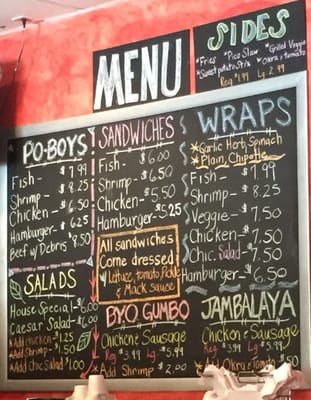 MENU
SIDES
*Fries *Pico Slaw *Grilled Veggie
*Sweet potato Stix *Okra & tomato
Reg $1.99 Lg 2.99
PO-BOYS
Fish - $7.99
Shrimp - $8.25
Chicken - $6.50
Hamburger - $6.25
Beef w/ Debris $8.50
SALADS
House Special - $6.00
Caesar Salad - $6.00
*Add chicken - $1.25
*Add Shrimp - $1.50
*Add Chic Salad $1.00
SANDWICHES
Fish - $6.00
Shrimp - $6.50
Chicken - $5.50
Hamburger - $5.25
All sandwiches
Come dressed
Lettuce, tomato, Pickle
& Mack sauce
BYO GUMBO
Chicken & Sausage
Reg $3.99 Lg $5.99
*Add Shrimp - $2.00
WRAPS
*Garlic Herb, Spinach
*Plain, Chipotle
Fish - $7.99
Shrimp - $8.25
Veggie - $7.50
Chicken - $7.50
Chic. Salad - $7.50
Hamburger - $6.50
JAMBALAYA
Chicken & Sausage
Reg $3.99 Lg $5.99
*Add Okra & Tomato